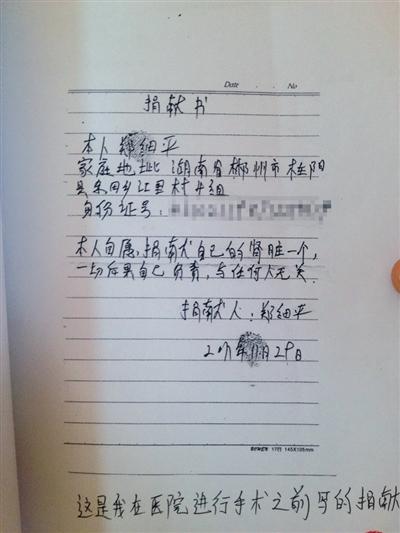 Date No
捐献书
本人郑细平
家庭地址:湖南省郴州市桂阳
县东回乡江里村4组
身份证号:
本人自愿捐献自己的肾脏一个,
一切后果自己负责,与任何人无关.
捐献人:郑细平
年 月29日
17行 145X105mm
这是我在医院进行手术之前写的捐献